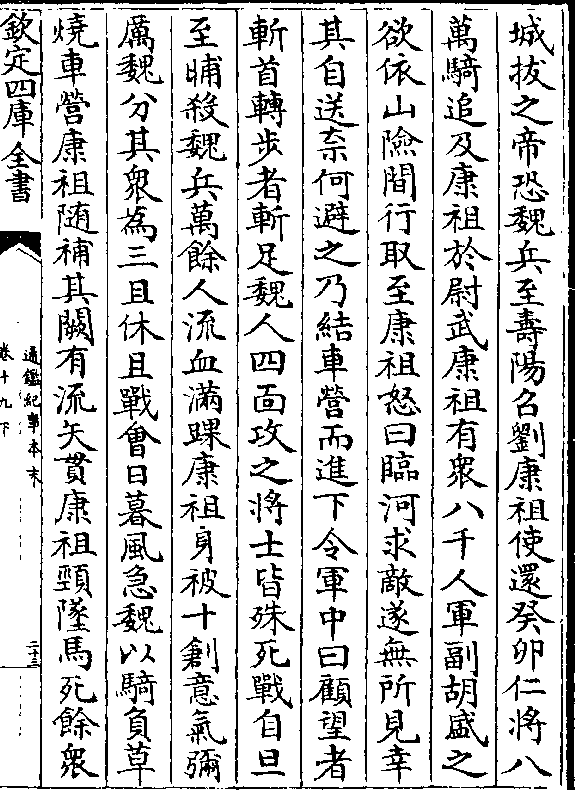 城拔之帝恐魏兵至壽陽召劉康祖使還癸卯仁將八
萬騎追及康祖於尉武康祖有衆八千人軍副胡盛之
欲依山險間行取至康祖怒曰臨河求敵遂無所見幸
其自送奈何避之乃結車營而進下令軍中曰顧望者
斬首轉步者斬足魏人四面攻之將士皆殊死戰自旦
至晡殺魏兵萬餘人流血滿踝康祖身被十創意氣彌
厲魏分其衆為三且休且戰會日暮風急魏以騎負草
燒車營康祖随補其闕有流矢貫康祖頸墜馬死餘衆
欽定四庫全書
通鑑紀事本末
卷十九下
二十三